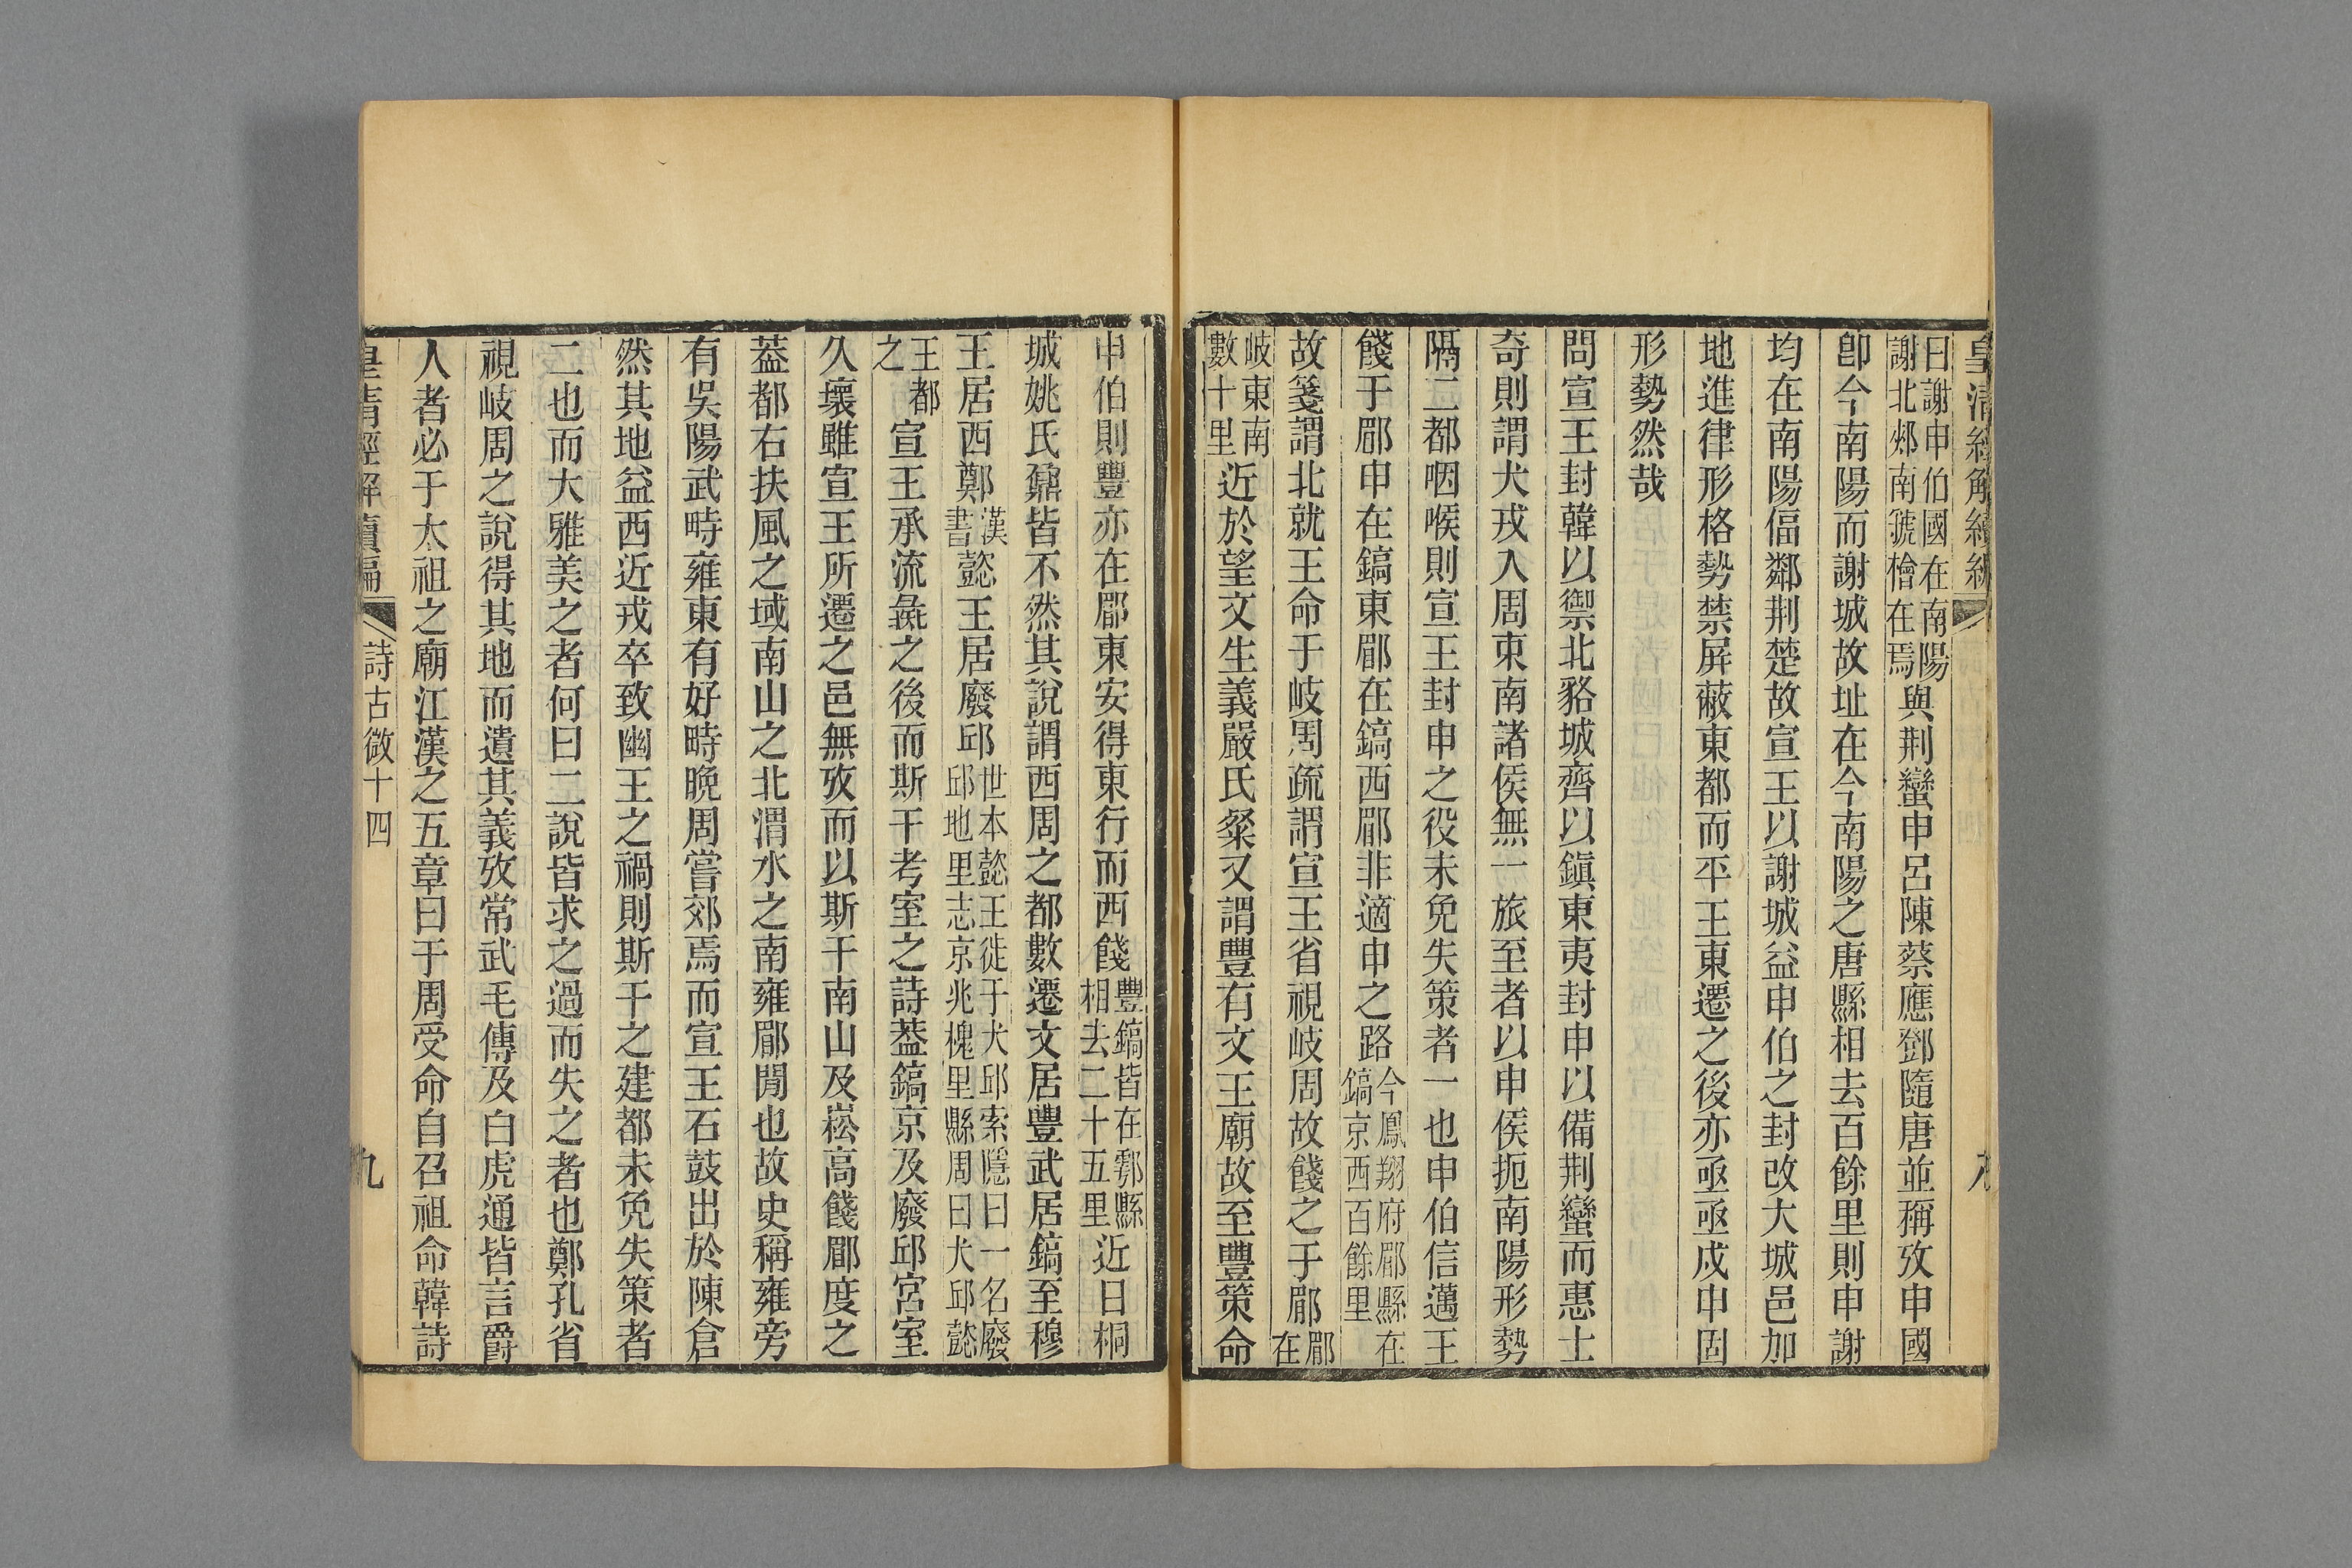 皇清經解續編
曰謝申伯國在南陽
謝北郟南虢檜在焉與荆蠻申呂陳蔡應鄧隨唐並稱攷申國
卽今南陽而謝城故址在今南陽之唐縣相去百餘里則申謝
均在南陽偪鄰荆楚故宣王以謝城益申伯之封改大城邑加
地進律形格勢禁屏蔽東都而平王東遷之後亦亟亟戍申固
形勢然哉
問宣王封韓以禦北貉城齊以鎭東夷封申以備荆蠻而惠士
奇則謂犬戎入周東南諸侯無一旅至者以申侯扼南陽形勢
隔二都咽喉則宣王封申之役未免失策者一也申伯信邁王
餞于郿申在鎬東郿在鎬西郿非適申之路今鳳翔府郿縣在
鎬京西百餘里
故箋謂北就王命于岐周疏謂宣王省視岐周故餞之于郿郿
在
岐東南
數十里近於望文生義嚴氏粲又謂豐有文王廟故至豐策命
申伯則豐亦在郿東安得東行而西餞豐鎬皆在鄠縣
相去二十五里近日桐
城姚氏鼐皆不然其說謂西周之都數遷文居豐武居鎬至穆
王居西鄭漢
書懿王居廢邱世本懿王徙于犬邱索隱曰一名廢
邱地里志京兆槐里縣周曰犬邱懿
王都
之宣王承流彘之後而斯干考室之詩葢鎬京及廢邱宮室
久壞雖宣王所遷之邑無攷而以斯干南山及崧高餞郿度之
葢都右扶風之域南山之北渭水之南雍郿閒也故史稱雍旁
有吳陽武畤雍東有好畤晚周嘗郊焉而宣王石鼓出於陳倉
然其地益西近戎卒致幽王之禍則斯干之建都未免失策者
二也而大雅美之者何曰二說皆求之過而失之者也鄭孔省
視岐周之說得其地而遺其義攷常武毛傳及白虎通皆言爵
人者必于太祖之廟江漢之五章曰于周受命自召祖命韓詩
皇淸經解續編
詩古微十四
九